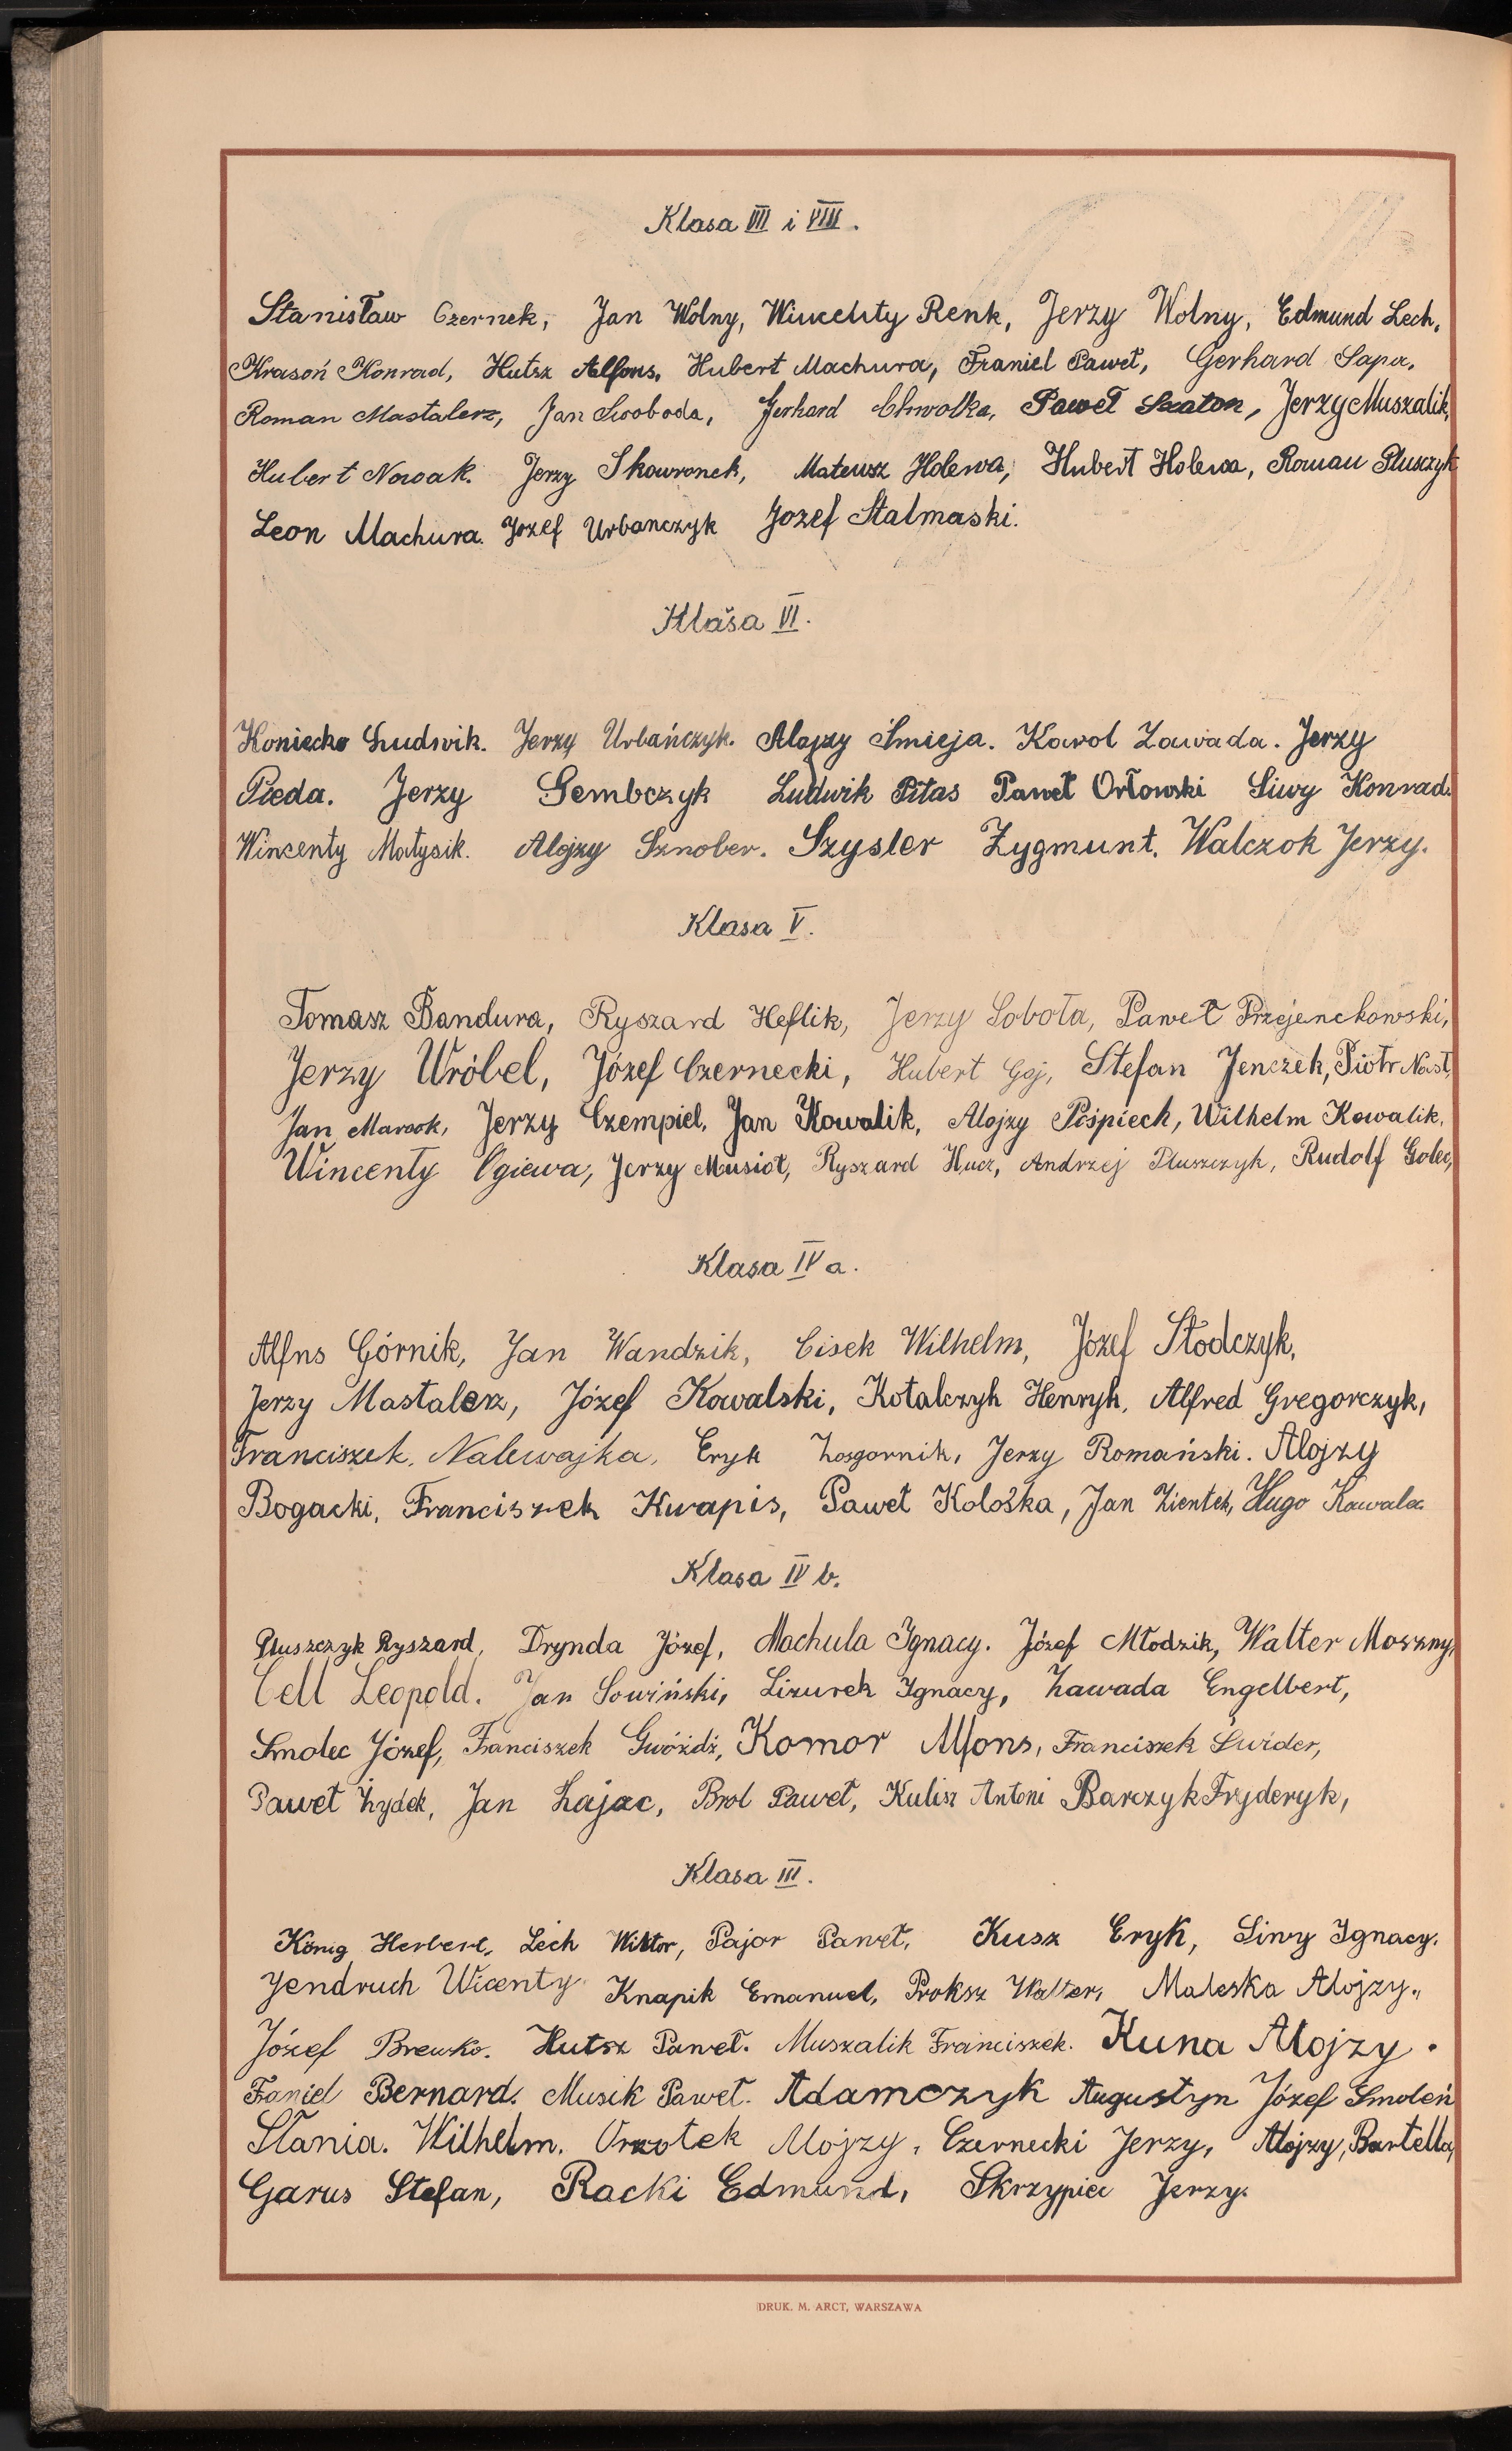 Klasa VII i VIII.
Stanisław Czernek, Jan Wolny, Wincenty Renk, Jerzy Wolny, Edmund Lech,
Krasoń Konrad, Hutsz Alfons, Hubert Machura, Franiel Paweł, Gerhard Sapa,
Roman Mastalerz, Jan Swoboda, Gerhard Chwołka, Paweł Szaton, Jerzy Muszalik,
Hubert Nowak. Jerzy Skowronek, Mateusz Holewa, Hubert Holewa, Roman Pluszczyk
Leon Machura. Jozef Urbanczyk Jozef Stalmaski.
Klasa VI.
Koniecko Ludwik. Jerzy Urbańczyk. Alojzy Śmieja. Karol Zawada. Jerzy
Pieda. Jerzy Gembczyk Ludwik Pitas Paweł Orłowski Siwy Konrad.
Wincenty Matysik. Alojzy Sznober. Szysler Zygmunt. Walczok Jerzy.
Klasa V.
Tomasz Bandura, Ryszard Heflik, Jerzy Sobota, Paweł Przejenckowski,
Jerzy Wróbel, Józef Czernecki, Hubert Gaj, Stefan Jenczek, Piotr Nast,
Jan Marcok, Jerzy Czempiel, Jan Kowalik, Alojzy Pośpiech, Wilhelm Kowalik,
Wincenty Ogiewa, Jerzy Musioł, Ryszard Hucz, Andrzej Pluszczyk, Rudolf Golec,
Klasa IV a.
Alfns Górnik, Jan Wandzik, Cisek Wilhelm, Józef Stodczyk,
Jerzy Mastalerz, Józef Kowalski, Kotalczyk Henryk, Alfred Gregorczyk,
Franciszek, Nalewajka, Eryk Zosgornik, Jerzy Romański. Alojzy
Bogacki, Franciszek Kwapis, Paweł Kolośka, Jan Zientek, Hugo Kowalec
Klasa IV b.
Pluszczyk Ryszard, Drynda Józef, Machula Ignacy. Józef Młodzik, Walter Moszny,
Cell Leopold. Jan Sowiński, Lizurek Ignacy, Zawada Engelbert,
Smolec Józef, Franciszek Gwóźdź, Komor Alfons, Franciszek Świder,
Paweł Żydek, Jan Zajac, Brol Paweł, Kulisz Antoni Barczyk Fryderyk,
Klasa III.
König Herbert, Lech Wiktor, Pajor Paweł, Kusz Eryk, Siwy Ignacy.
Jendruch Wicenty Knapik Emanuel, Proksz Walter, Maleska Alojzy,,
Józef Brewko. Hutsz Paweł. Muszalik Franciszek. Kuna Alojzy.
Faniel Bernard. Musik Paweł. Adamczyk Augustyn Józef Smoleń
Stania. Wilhelm. Orzotek Alojzy, Czernecki Jerzy, Alojzy, Bartella,
Garus Stefan, Racki Edmund, Skrzypiec Jerzy.
DRUK. M. ARCT, WARSZAWA